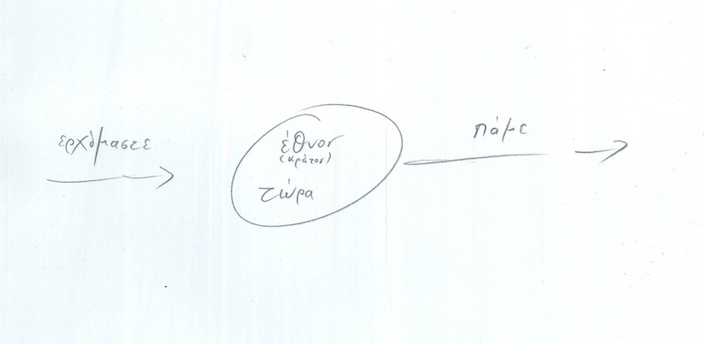 ερχόμαστε
έθνος
(κράτος)
τώρα
πάμε